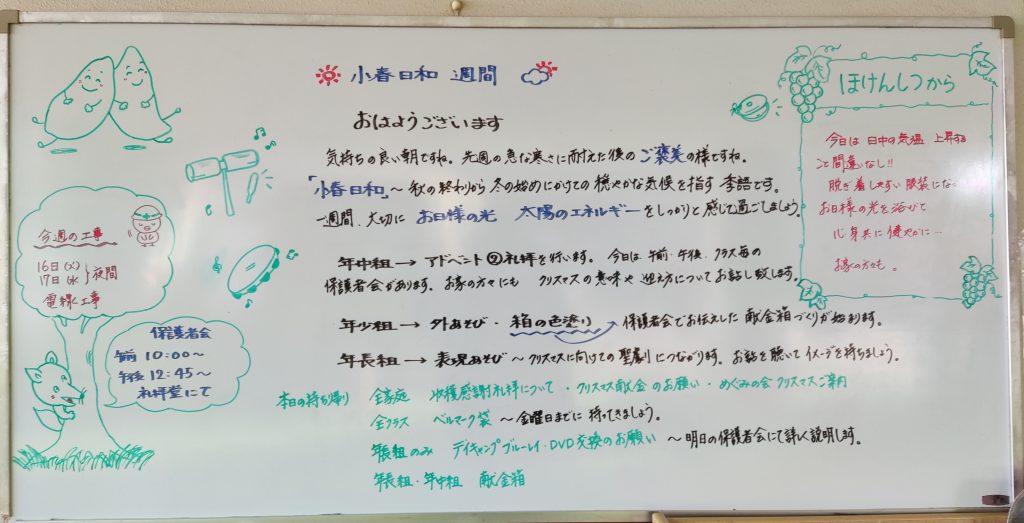 小春日和 週間
おはようございます
気持ちの良い朝ですね。先週の急な寒さに耐えた後のご褒美の様ですね。
「小春日和」〜 秋の終わりから冬の始めにかけての穏やかな気候を指す季語です。
一週間、大切に お日様の光 太陽のエネルギーをしっかりと感じて過ごしましょう。
年中組 → アドベント②礼拝を行います。今日は午前・午後、クラス毎の
保護者会があります。お家の方々にも クリスマスの意味や迎え方についてお話し致します。
年少組 → 外あそび・箱の色塗り → 保護者会でお伝えした献金箱づくりが始まります。
年長組 → 表現あそび 〜 クリスマスに向けての聖劇につながります。お話を聴いてイメージを持ちましょう。
本日の持ち帰り 全家庭 収穫感謝礼拝について・クリスマス献金のお願い・めぐみの会クリスマスご案内
全クラス ベルマーク袋 〜 金曜日までに持ってきましょう。
年長組のみ デイキャンプブルーレイ・DVD交換のお願い 〜 明日の保護者会にて詳しく説明します。
年長組・年中組 献金箱
ほけんしつから
今日は日中の気温 上昇する
こと間違いなし!!
脱ぎ着しやすい服装にな
お日様の光を浴びて
心身共に健やかに…
お家の方も。
今週の工事
16日(火)
17日(水) 夜間
電線工事
保護者会
午前 10:00〜
午後 12:45〜
礼拝堂にて